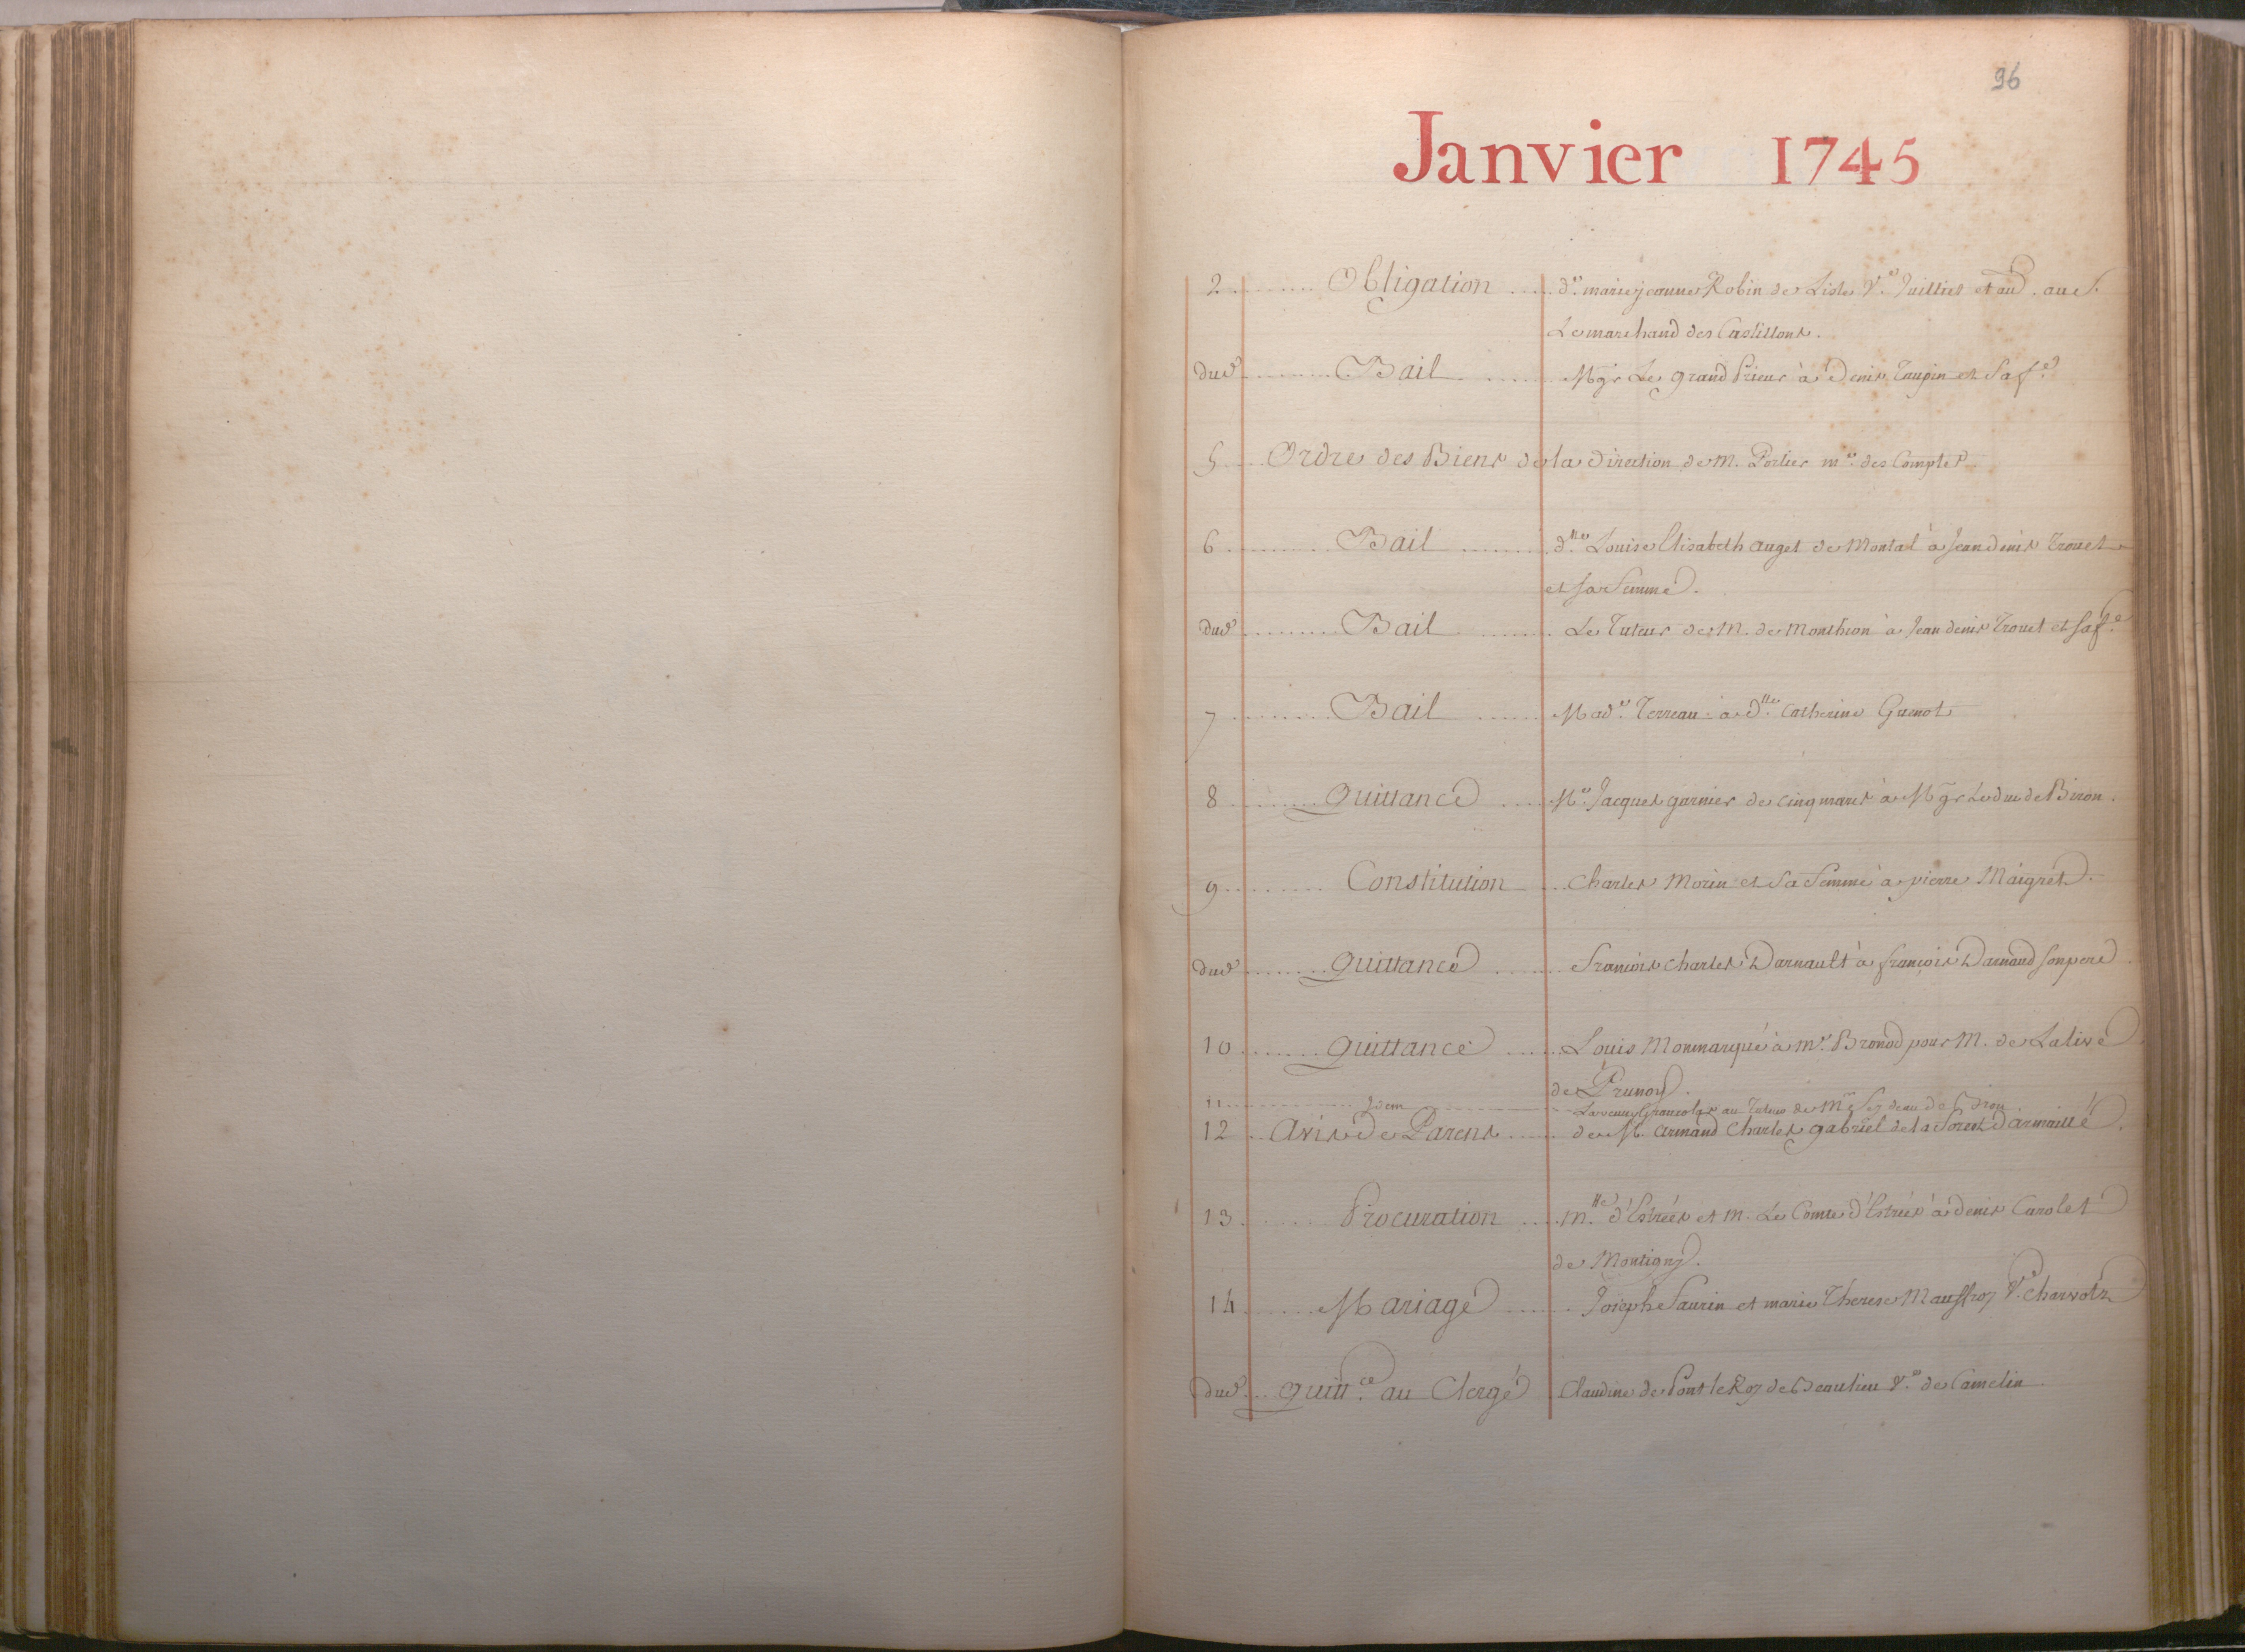 96
Janvier 1745
2 Obligation d.e marie jeanne Robin de Lisle V.e Juillet et au d. au S.
Lemarchand des Castillons.
Dud Bail Mgr Le grand Prieur à Denis Taupin et Sa f.e
5 Ordre des Biens de la Direction de M. Portier m.e des Comptes
6 Bail d.lle Louise Elisabeth auget de Montal à Jean denis Trouet
et sa femme.
Dud Bail Le Tuteur de M. de Monthion à Jean denis Trouet et sa f.e
7 Bail Mad.e Terreau à d.lle Catherine Guenot
8 Quittance M.e Jacques garnier de cinqmars à Mgr Le duc de Biron.
9 Constitution Charles Morin et Sa femme à pierre Maigret.
Dud Quittance François charles Darnault à françois Darnaud son pere.
10 Quittance Louis Monmarqué à m.e Bronod pour M. de Lalive
de Prunoy.
11 Idem La veuve Grancolas au Tuteur de M.lle Seydeau de
12 Avis de Parens de M. armand charles gabriel de la Forest Darmaillé.
13 Procuration M.lle d'Estrées et M. Le Comte d'Estrées à denis Carolet
de Montigny.
14 Mariage Joseph Saurin et marie Therese Mauffroy V.e
Dud Quitt.ce au Clergé Claudine de Pont le Roy de Beaulieu V.e de Camelin